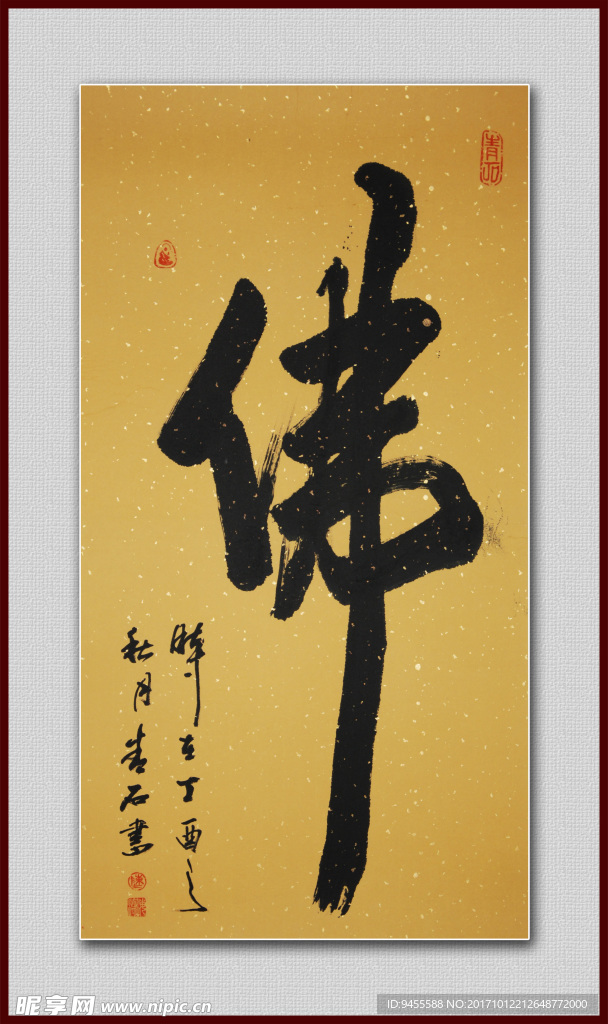 佛
時在丁酉之
秋月青石書
青石
昵享网 www.nipic.cn
ID:9455588 NO:20171012212648772000